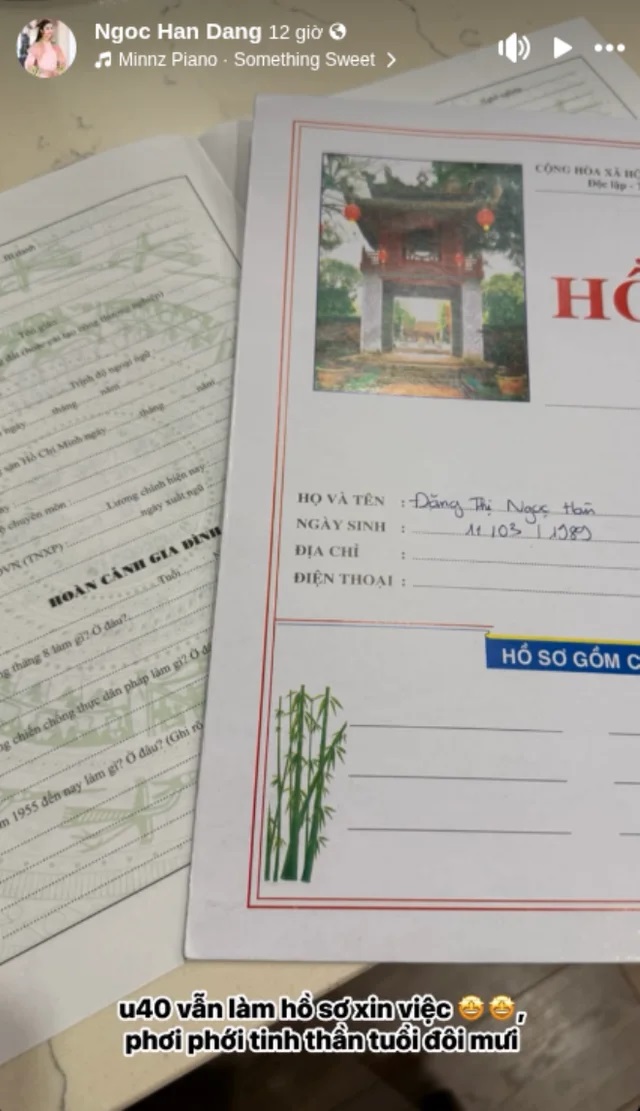 Ngoc Han Dang 12 giờ
Minnz Piano · Something Sweet
CỘNG HÒA XÃ HỘ
Độc lập - T
HỒ
HỌ VÀ TÊN : Đặng Thị Ngọc Hân
NGÀY SINH : 11/03/1989
ĐỊA CHỈ :
ĐIỆN THOẠI :
HỒ SƠ GỒM C
Trình độ ngoại ngữ
ngày tháng năm
tháng năm
sản Hồ Chí Minh ngày
chuyên môn : Lương chính hiện nay
ngày xuất ngũ
VN (TNXP) :
HOÀN CẢNH GIA ĐÌNH
Tuổi
g tháng 8 làm gì? Ở đâu?
g chiến chống thực dân pháp làm gì? Ở đ
m 1955 đến nay làm gì? Ở đâu? (Ghi rõ
u40 vẫn làm hồ sơ xin việc 🤩🤩,
phơi phới tinh thần tuổi đôi mươi